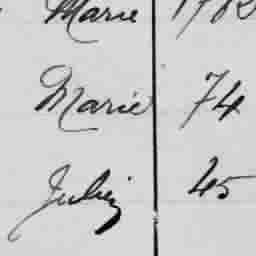 Marie
Marie 74
Julien 45